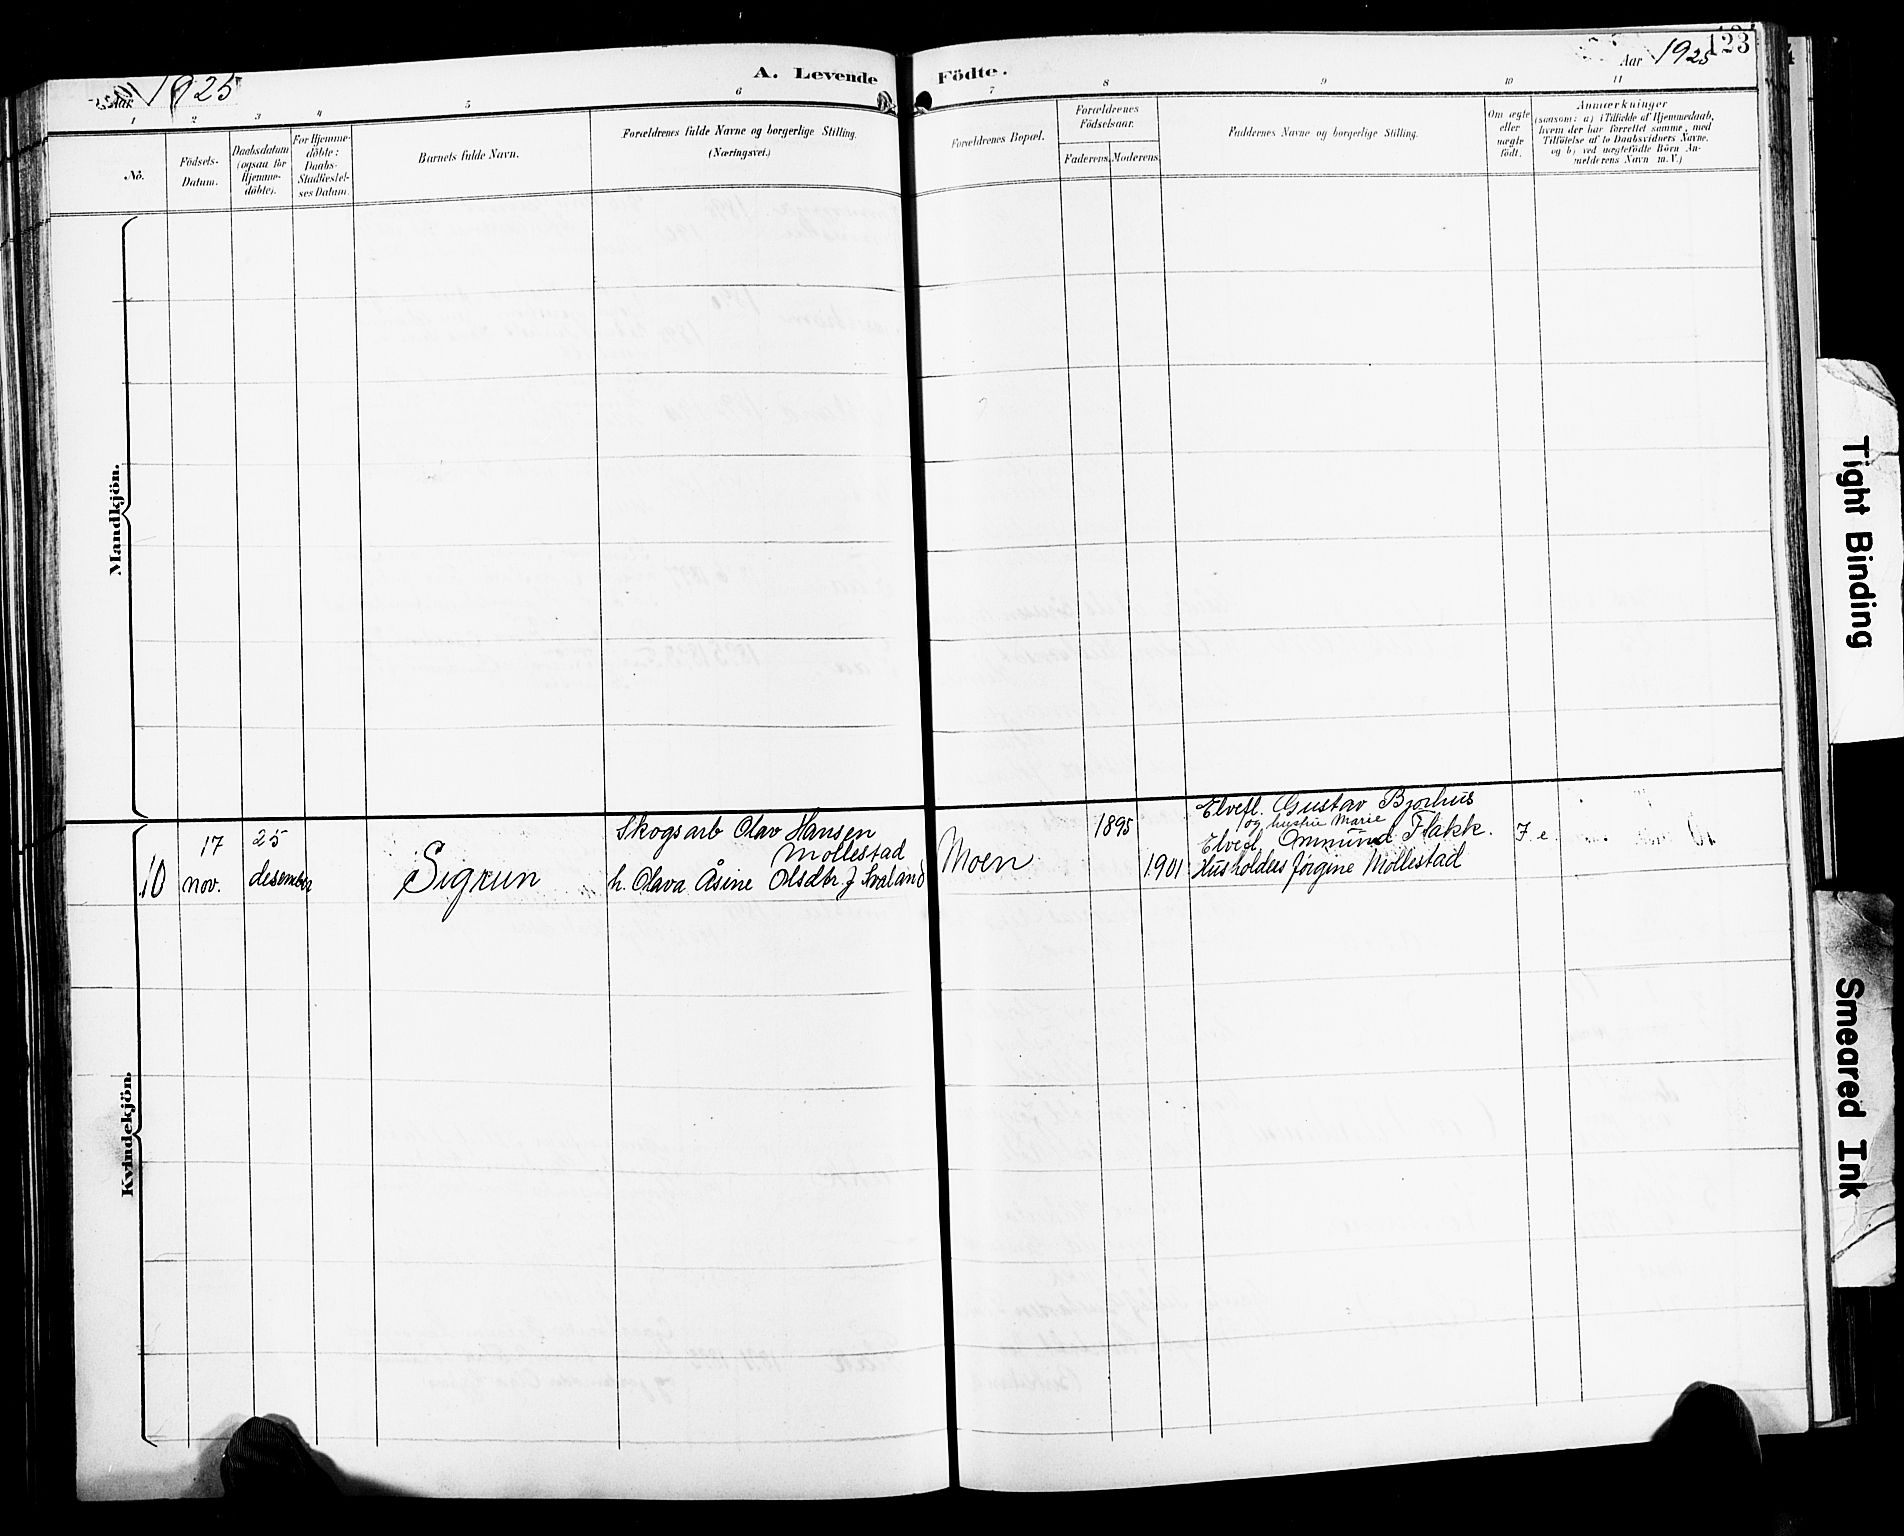 Aar 1925
A. Levende Födte.
Aar 1925
123
1 2 3 4 5 6 7 8 9 10 11
No.
Födsels-Datum.
Daabsdatum (ogsaa for Hjemme-döbte).
For Hjemme-döbte: Daabs-Stadfæstel-ses Datum.
Barnets fulde Navn.
Forældrenes fulde Navne og borgerlige Stilling.
(Næringsvei.)
Forældrenes Bopæl.
Forældrenes Födselsaar.
Faderens. Moderens.
Faddernes Navne og borgerlige Stilling.
Om ægte eller uægte födt.
Anmærkninger
(saasom: a) i Tilfælde af Hjemmedaab,
hvem der har forrettet samme, med
Tilföielse af to Daabsvidners Navne,
og b) ved uægtefödte Börn An-
melderens Navn m. V.)
Mandkjön.
Kvindekjön.
10
17 nov.
25 desember
Sigrun
Skogsarb Olav Hansen
Mollestad
h. Olava Åsine Olsdtr f Svaland
Moen
1895
1901
Elvefl. Gustav Bjorhus
og hustru Marie
Elved Ommund Flakk.
Husholders Jørgine Mollestad
e.
Tight Binding
Smeared Ink